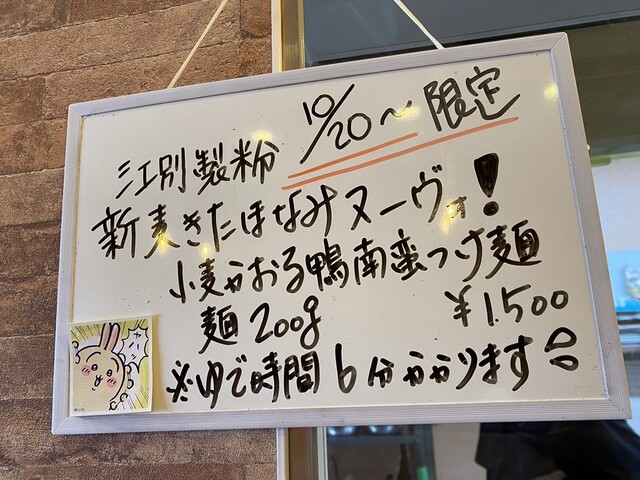 10/20～限定
江別製粉
新麦きたほなみヌーヴォ！
小麦かおる鴨南蛮つけ麺
麺200g ¥1.500
※ゆで時間6分かかります